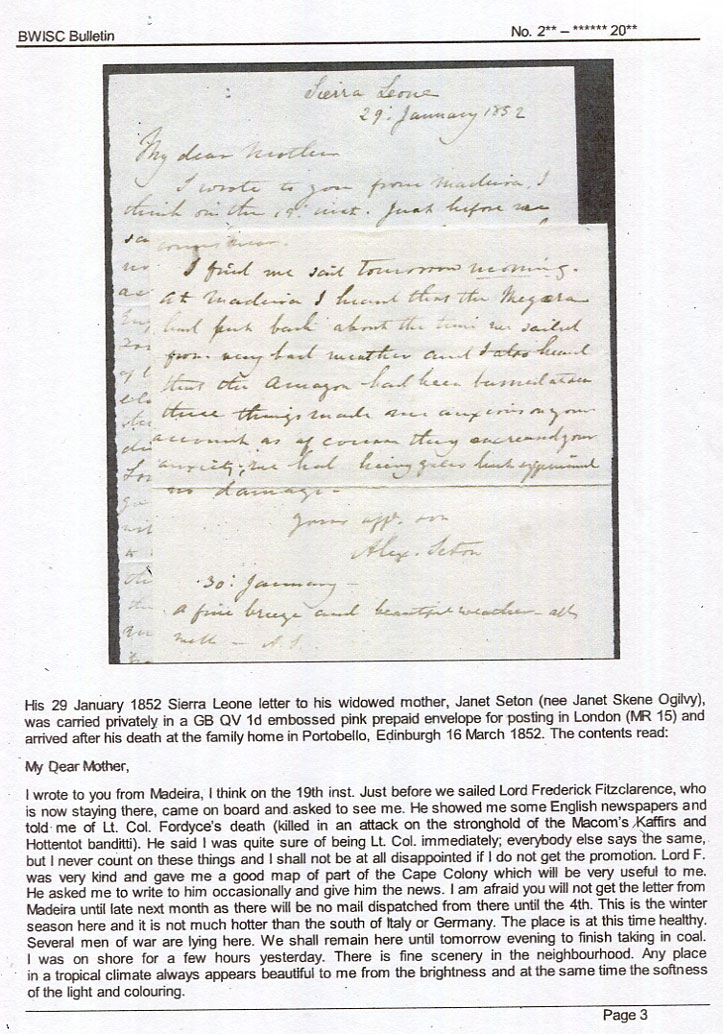 BWISC Bulletin
No. 2** – ****** 20**
Sierra Leone
29: January 1852
My dear Mother
I wrote to you from Madeira, I
think on the 19: inst. Just before we
sa
I find we sail tomorrow morning.
At Madeira I heard that the Megæra
had put back about the time we sailed
from very bad weather and I also heard
that the Amazon had been burned at sea
these things made me anxious on your
account as of course they increased your
anxiety; we had heavy gales but experienced
no damage.
Yours affte. son
Alex. Seton
30: January –
a fine breeze and beautiful weather – all
well – A.S.
His 29 January 1852 Sierra Leone letter to his widowed mother, Janet Seton (nee Janet Skene Ogilvy),
was carried privately in a GB QV 1d embossed pink prepaid envelope for posting in London (MR 15) and
arrived after his death at the family home in Portobello, Edinburgh 16 March 1852. The contents read:
My Dear Mother,
I wrote to you from Madeira, I think on the 19th inst. Just before we sailed Lord Frederick Fitzclarence, who
is now staying there, came on board and asked to see me. He showed me some English newspapers and
told me of Lt. Col. Fordyce's death (killed in an attack on the stronghold of the Macom's Kaffirs and
Hottentot banditti). He said I was quite sure of being Lt. Col. immediately; everybody else says the same,
but I never count on these things and I shall not be at all disappointed if I do not get the promotion. Lord F.
was very kind and gave me a good map of part of the Cape Colony which will be very useful to me.
He asked me to write to him occasionally and give him the news. I am afraid you will not get the letter from
Madeira until late next month as there will be no mail dispatched from there until the 4th. This is the winter
season here and it is not much hotter than the south of Italy or Germany. The place is at this time healthy.
Several men of war are lying here. We shall remain here until tomorrow evening to finish taking in coal.
I was on shore for a few hours yesterday. There is fine scenery in the neighbourhood. Any place
in a tropical climate always appears beautiful to me from the brightness and at the same time the softness
of the light and colouring.
Page 3